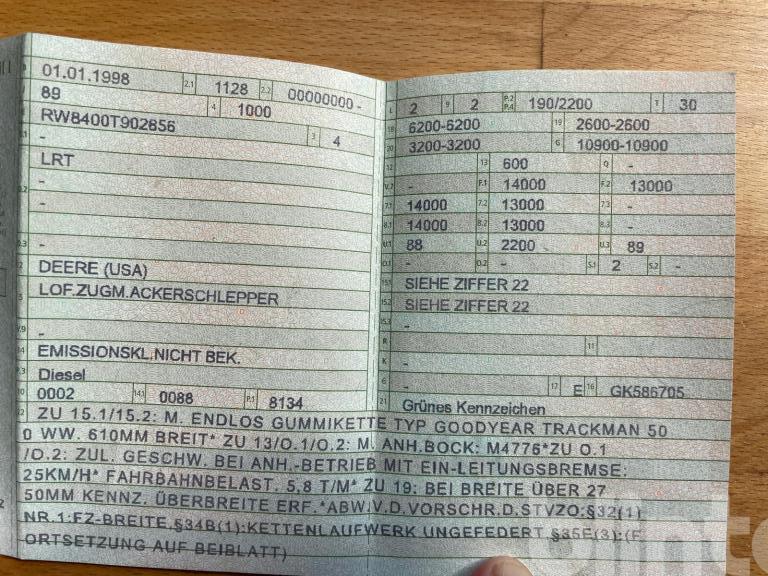 01.01.1998 2.1 1128 2.2 00000000 -
89 4 1000
RW8400T902856 3 4
-
LRT
-
-
-
DEERE (USA)
LOF.ZUGM.ACKERSCHLEPPER
-
EMISSIONSKL.NICHT BEK.
Diesel
0002 14.1 0088 P.1 8134
L 2 9 2 P.2 P.4 190/2200 T 30
18 6200-6200 19 2600-2600
20 3200-3200 G 10900-10900
12 13 600 Q -
V.7 - F.1 14000 F.2 13000
7.1 14000 7.2 13000 7.3 -
8.1 14000 8.2 13000 8.3 -
U.1 88 U.2 2200 U.3 89
O.1 - O.2 - S.1 2 S.2 -
15.1 SIEHE ZIFFER 22
15.2 SIEHE ZIFFER 22
15.3 -
R 11
K -
6 - 17 E 16 GK586705
21 Grünes Kennzeichen
22 ZU 15.1/15.2: M. ENDLOS GUMMIKETTE TYP GOODYEAR TRACKMAN 50
0 WW. 610MM BREIT* ZU 13/O.1/O.2: M. ANH.BOCK: M4776*ZU O.1
/O.2: ZUL. GESCHW. BEI ANH.-BETRIEB MIT EIN-LEITUNGSBREMSE:
25KM/H* FAHRBAHNBELAST. 5,8 T/M* ZU 19: BEI BREITE ÜBER 27
50MM KENNZ. ÜBERBREITE ERF.*ABW.V.D.VORSCHR.D.STVZO:§32(1)
NR.1:FZ-BREITE,§34B(1):KETTENLAUFWERK UNGEFEDERT,§35E(3):(F
ORTSETZUNG AUF BEIBLATT)